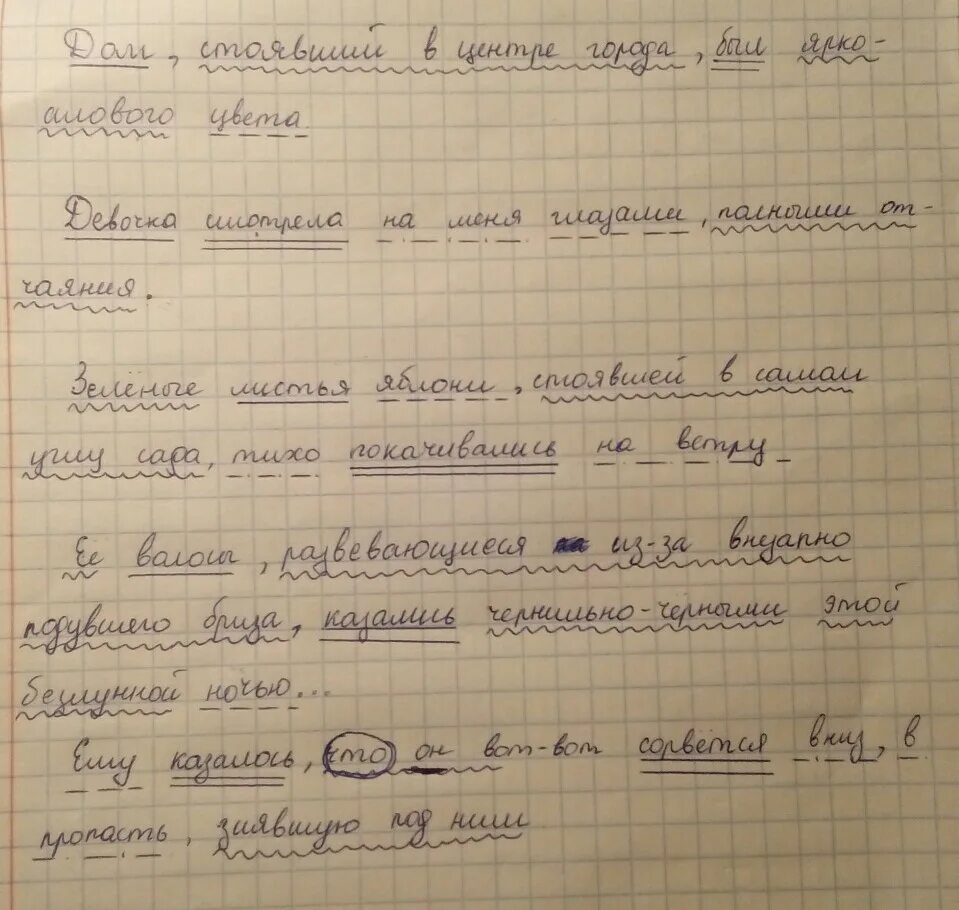 Дом, стоявший в центре города, был ярко-
алового цвета
Девочка смотрела на меня глазами, полными от-
чаяния.
Зелёные листья яблони, стоявшей в самом
углу сада, тихо покачивались на ветру
Ее волосы, развевающиеся из-за внезапно
подувшего бриза, казались чернильно-чёрными этой
безлунной ночью...
Ему казалось, что он вот-вот сорвётся вниз, в
пропасть, зиявшую под ним